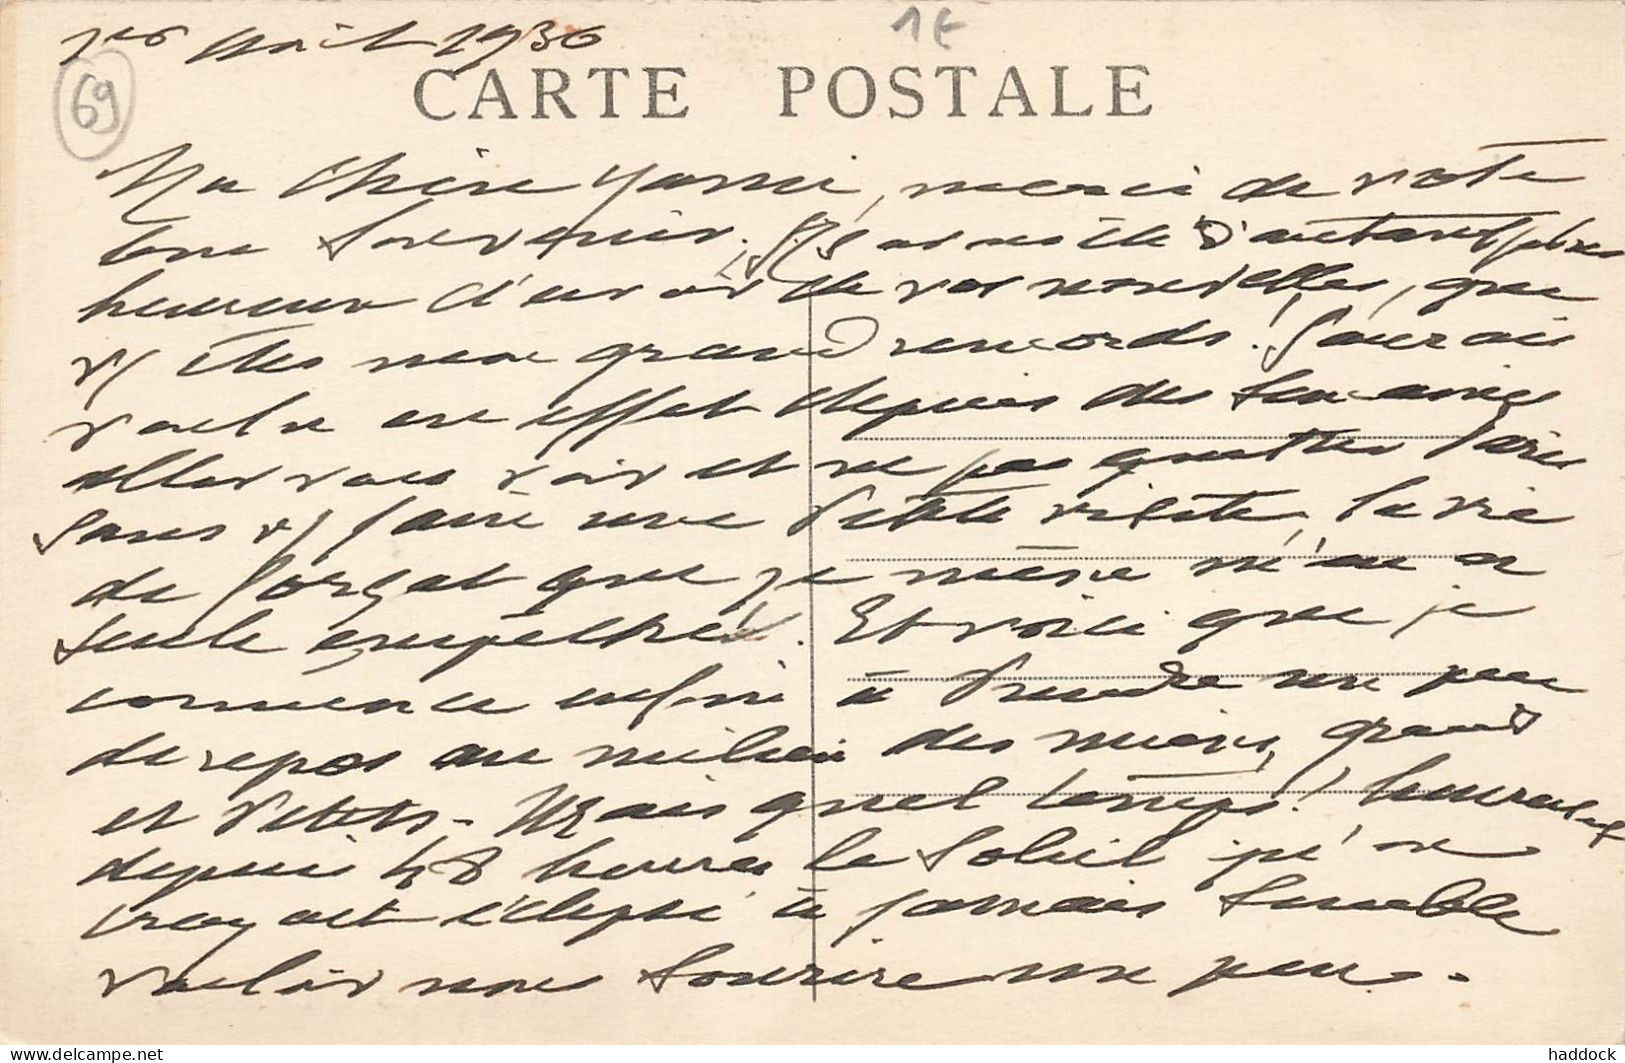 1er Août 1936
1€
69
CARTE POSTALE
Ma chère Yanni, merci de votre
bon souvenir. d'autant plus
heureux d'avoir de vos nouvelles, que
v/ êtes une grand remords! J'aurais
voulu en effet depuis des semaines
aller vous voir et ne pas quitter Paris
sans v/ faire une petite visite, la vie
de forçat que je mène m'en a
seule empêché. Et voici que je
commence enfin à prendre un peu
de repos au milieu des miens, grands
et petits. Mais quel temps! heureust
depuis 48 heures le soleil qu'on
croyait éclipsé à jamais semble
vouloir nous sourire un peu.
haddock